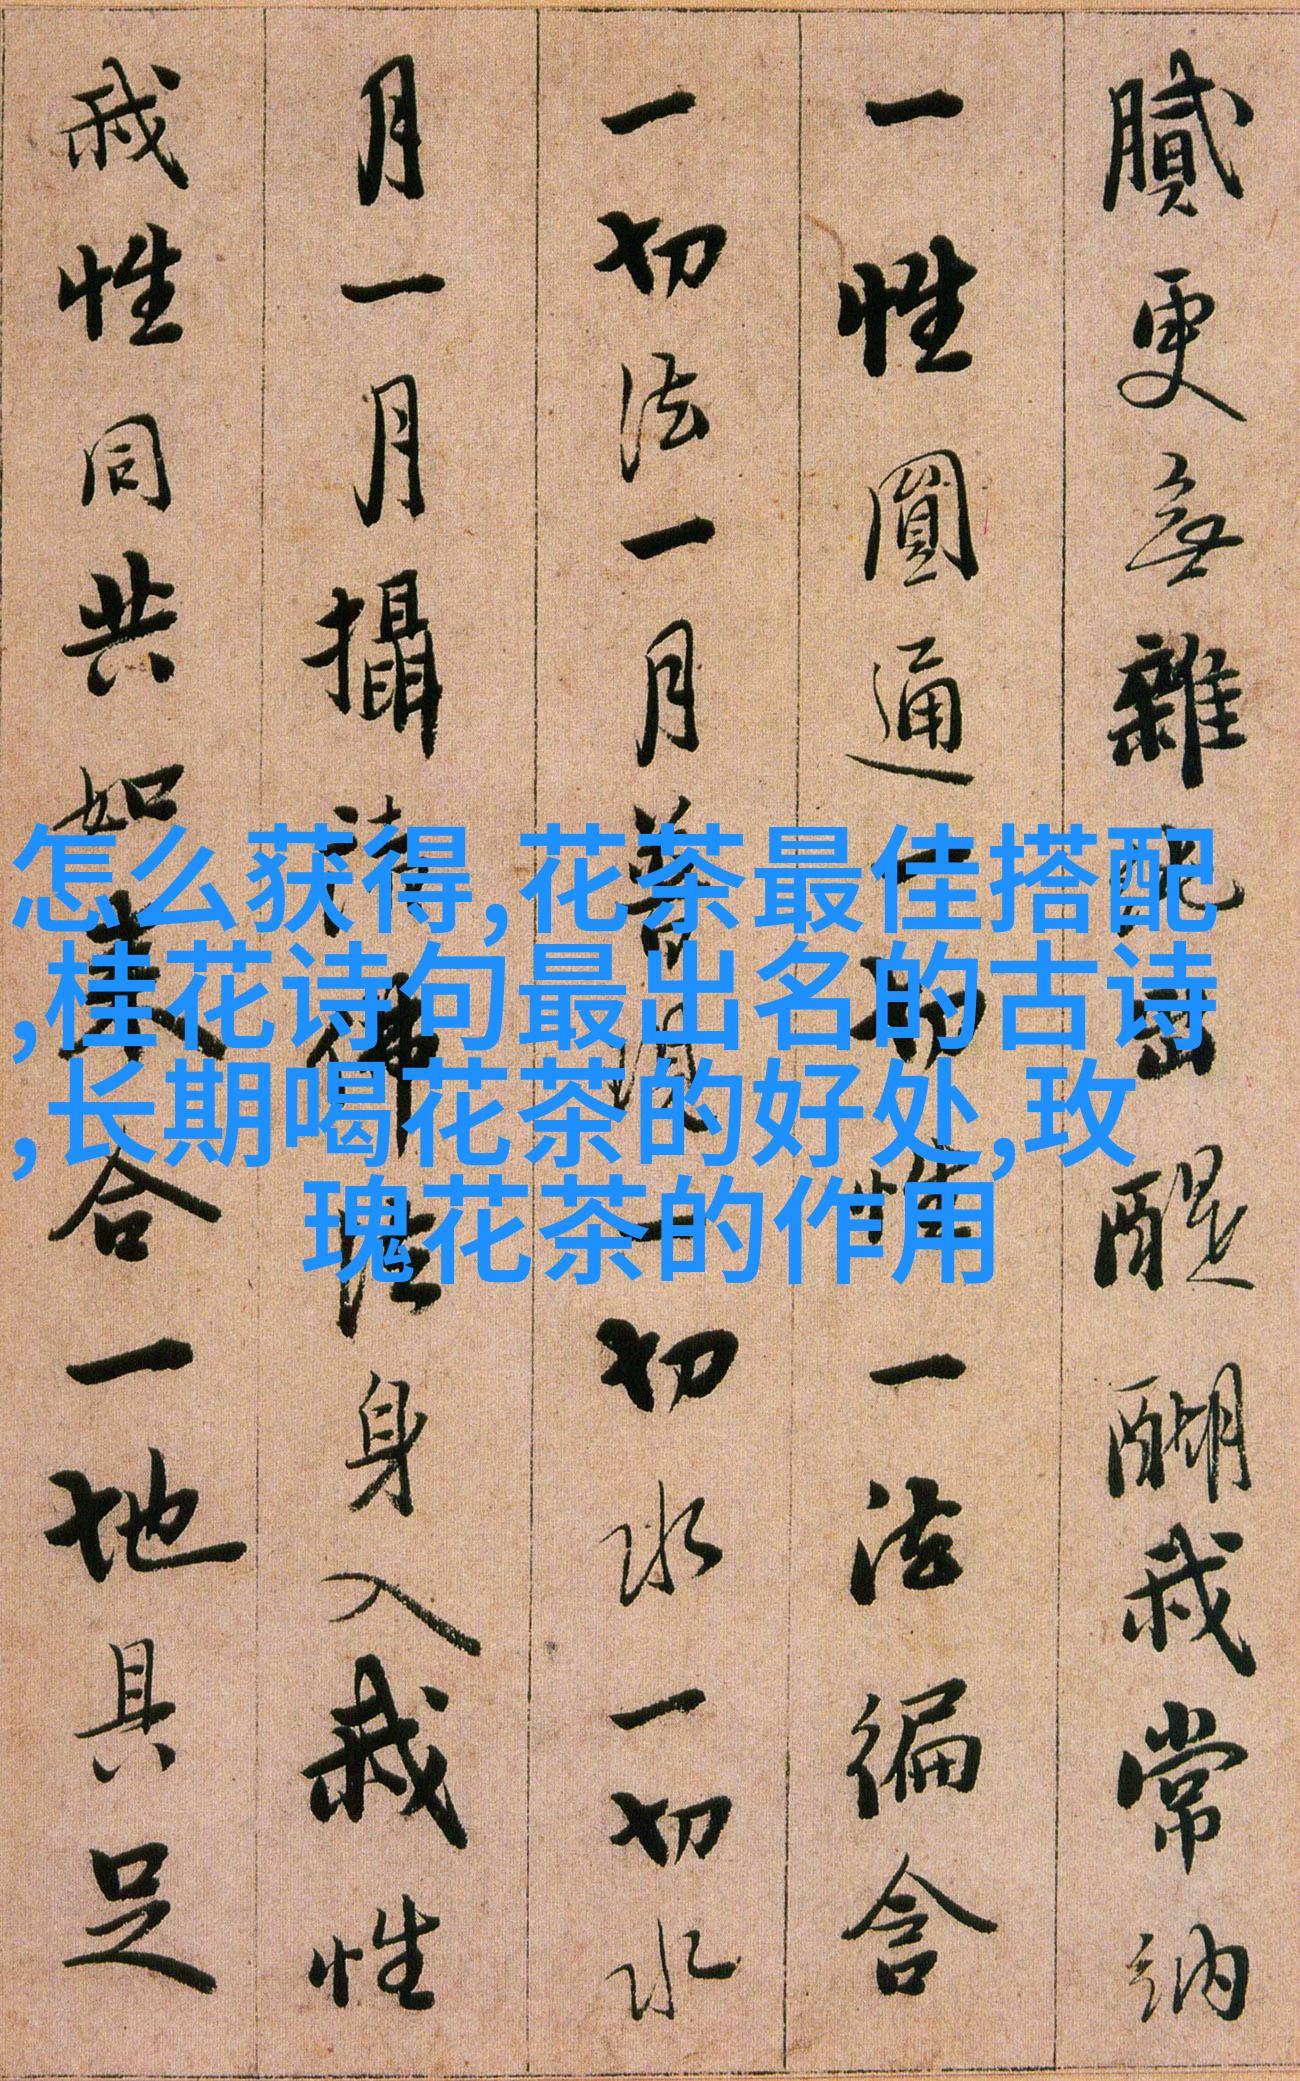 膩更無雜純出醍醐我常納
一性圓通一切性一法徧含
一切法一月普現一切水一切水
月一月攝諸佛法身入我性
我性同共如来合一地具足
怎么获得,花茶最佳搭配
,桂花诗句最出名的古诗
,长期喝花茶的好处,玫
瑰花茶的作用